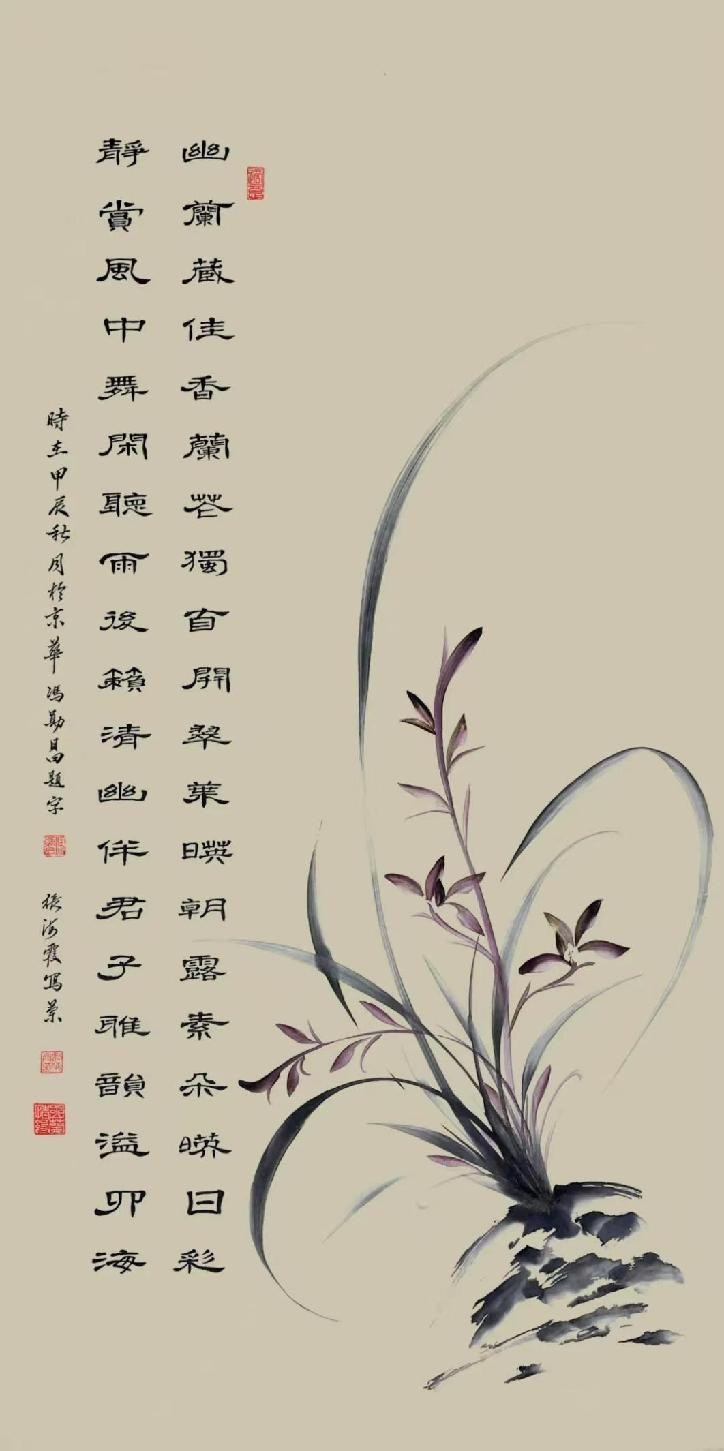 幽蘭藏佳香蘭花獨自開翠葉暎朝露素朵暎日彩
靜賞風中舞閑聽雨後籟清幽伴君子雅韻溢四海
時在甲辰秋月於京華馮勛昌題字
張海霞寫景